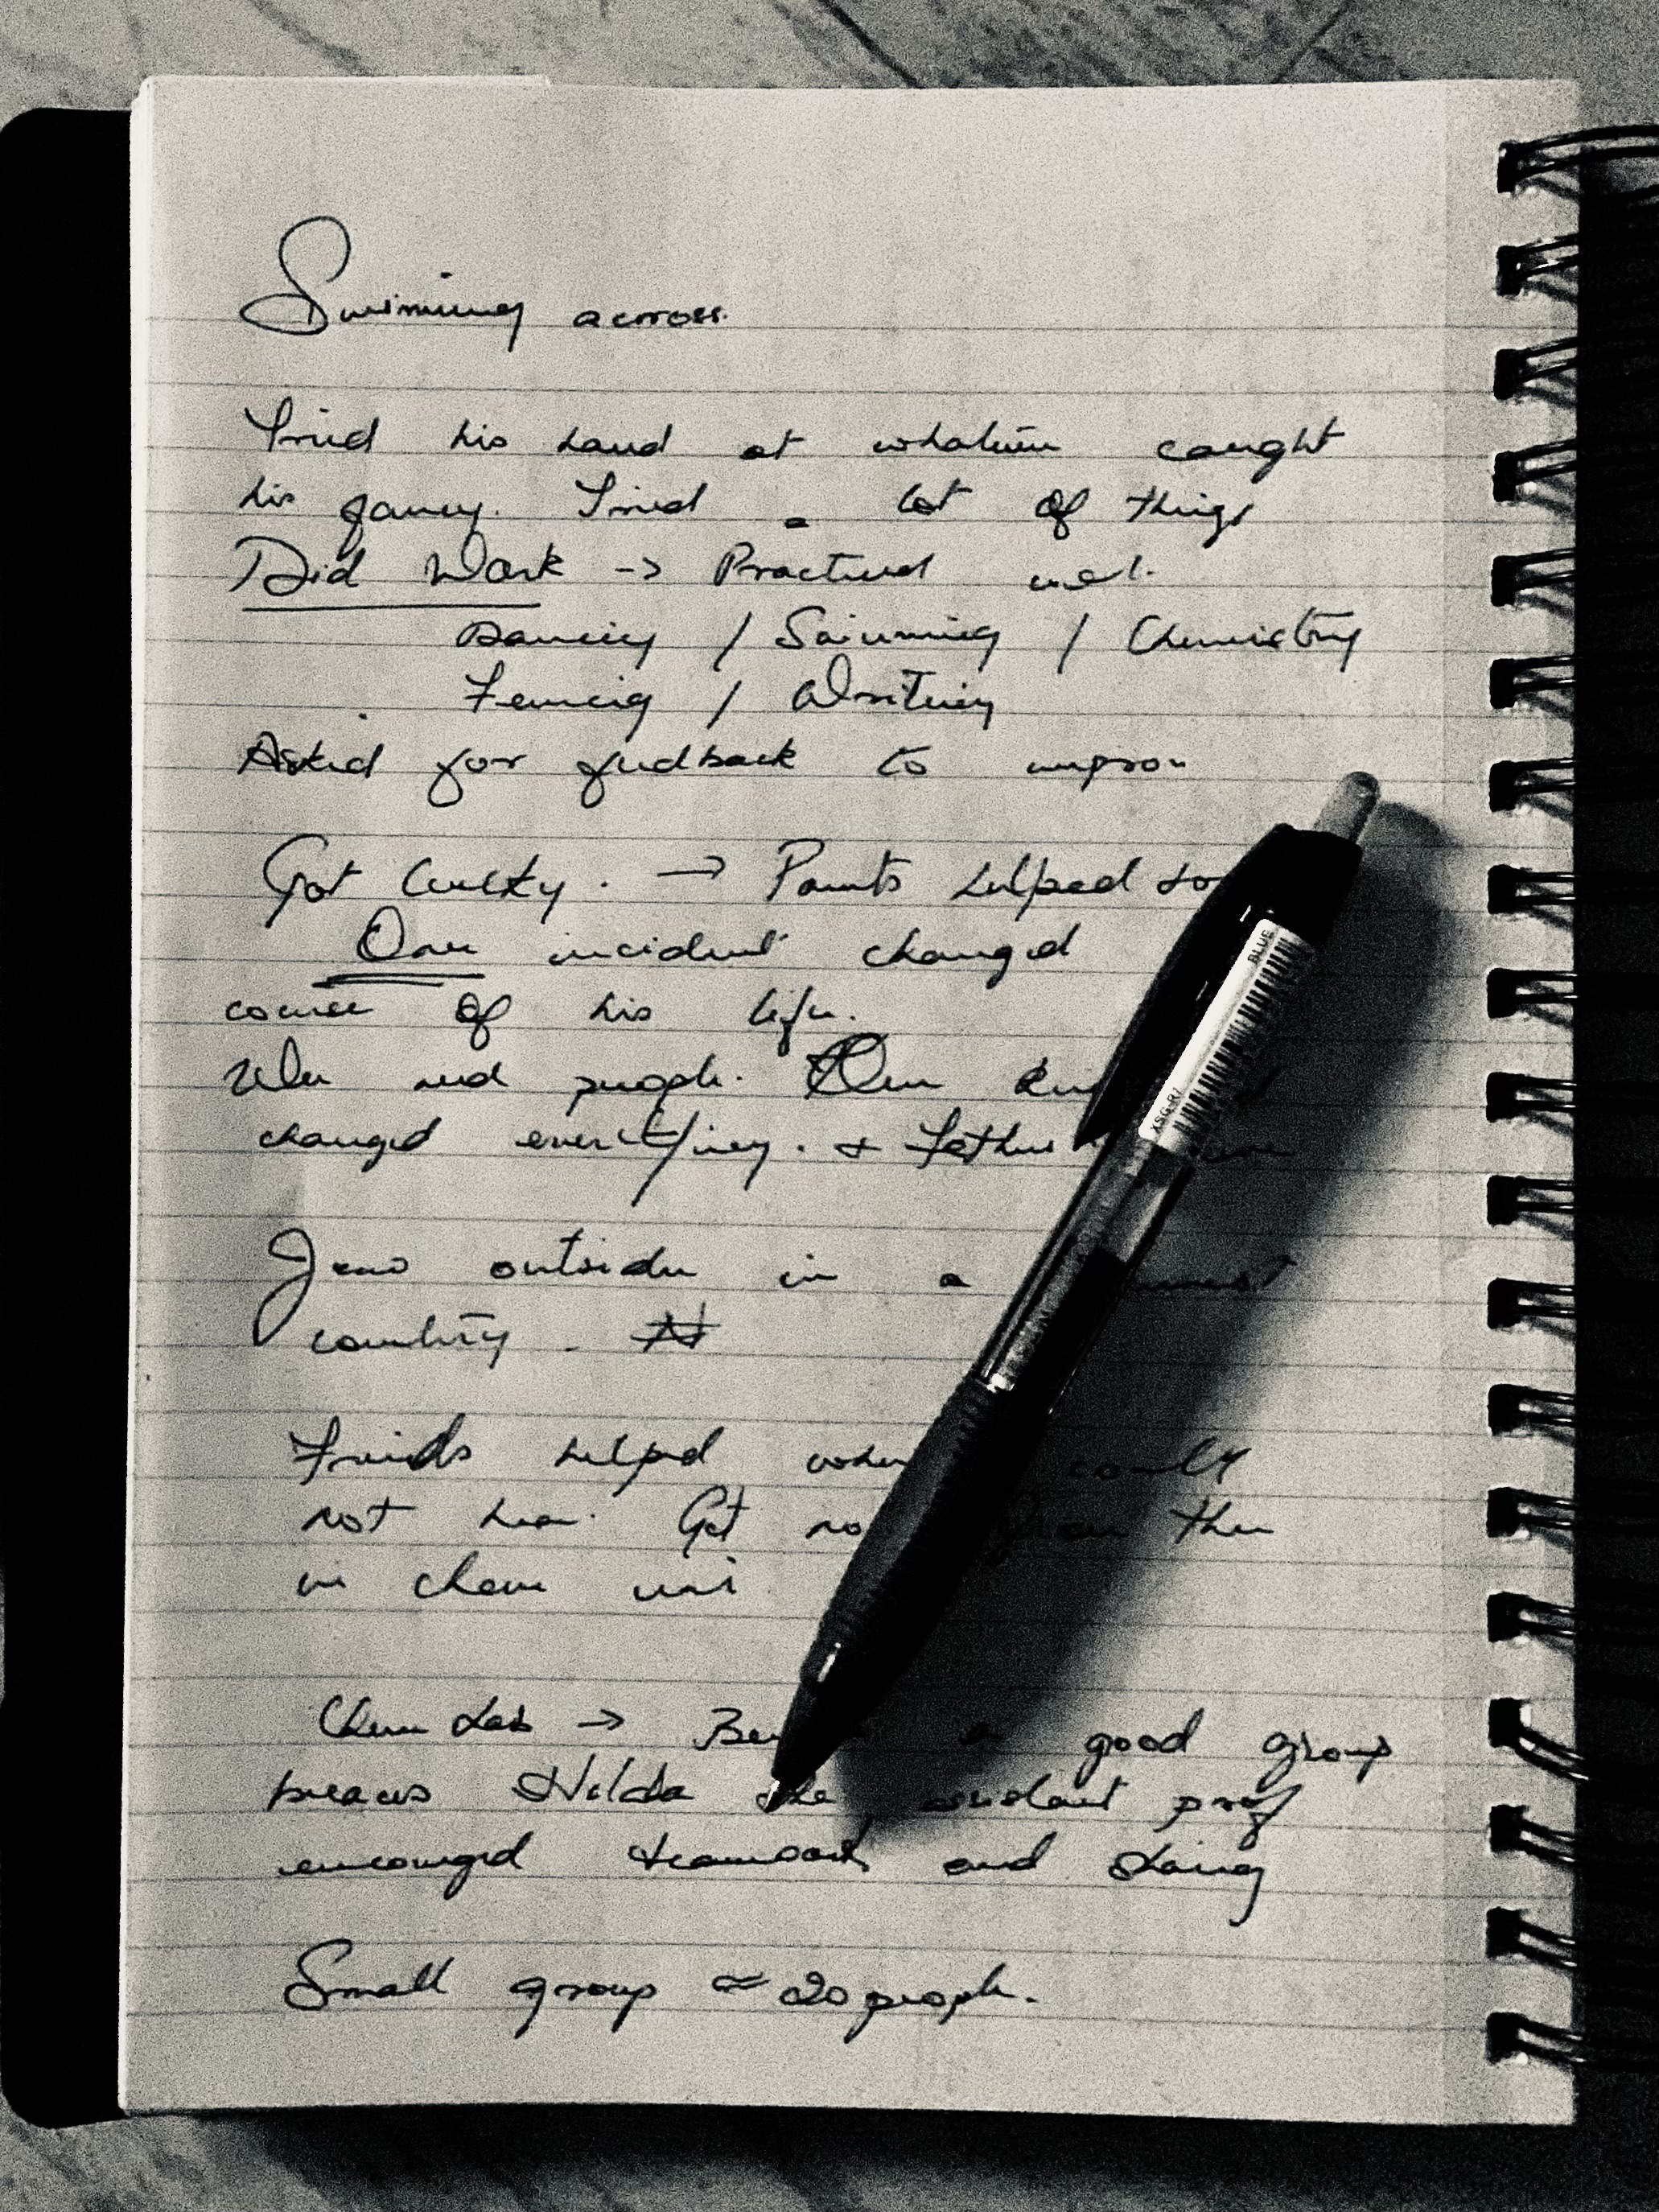 Swimming across.
Tried his hand at whatever caught
his fancy. Tried a lot of things
Did Work -> Practiced well.
Dancing / Swimming / Chemistry
Fencing / Writing
Asked for feedback to improve
Got lucky. -> Parents helped
One incident changed
course of his life.
people.
changed everything. +
Jew outsider in a
country.
Friends helped when could
not hear. Got then
in chem uni
Chem Lab -> a good group
because Hilda the prof
encouraged teamwork and
Small group ≈ 20 people.
BLUE